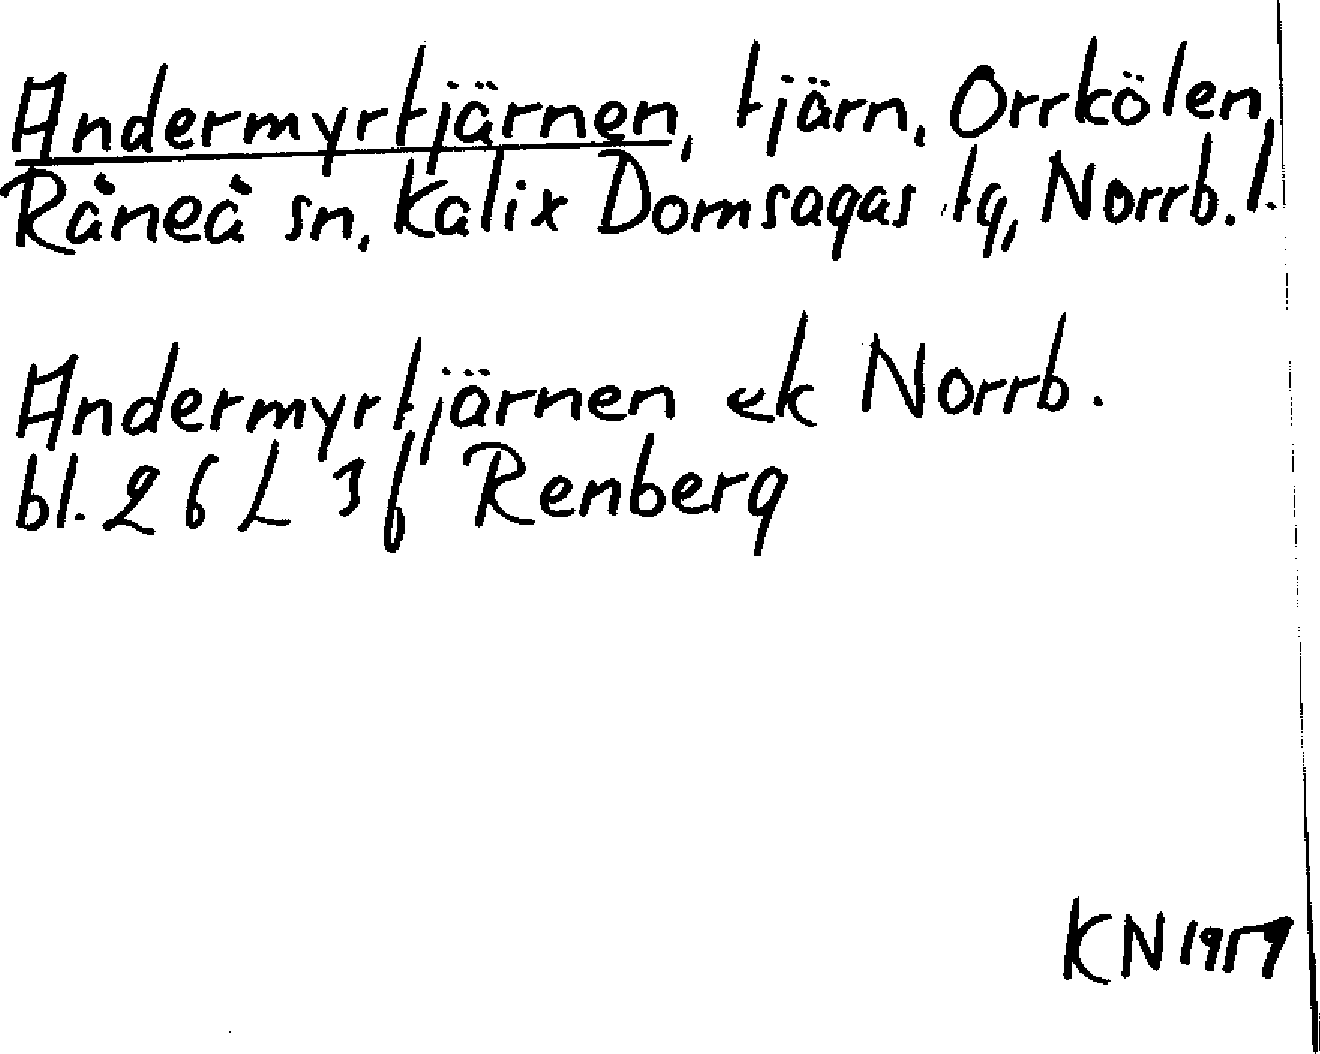 Andermyrtjärnen, tjärn, Orrkölen,
Råneå sn, Kalix Domsagas tg, Norrb. l.
Andermyrtjärnen ek Norrb.
bl. 26 L 3f Renberg
KN